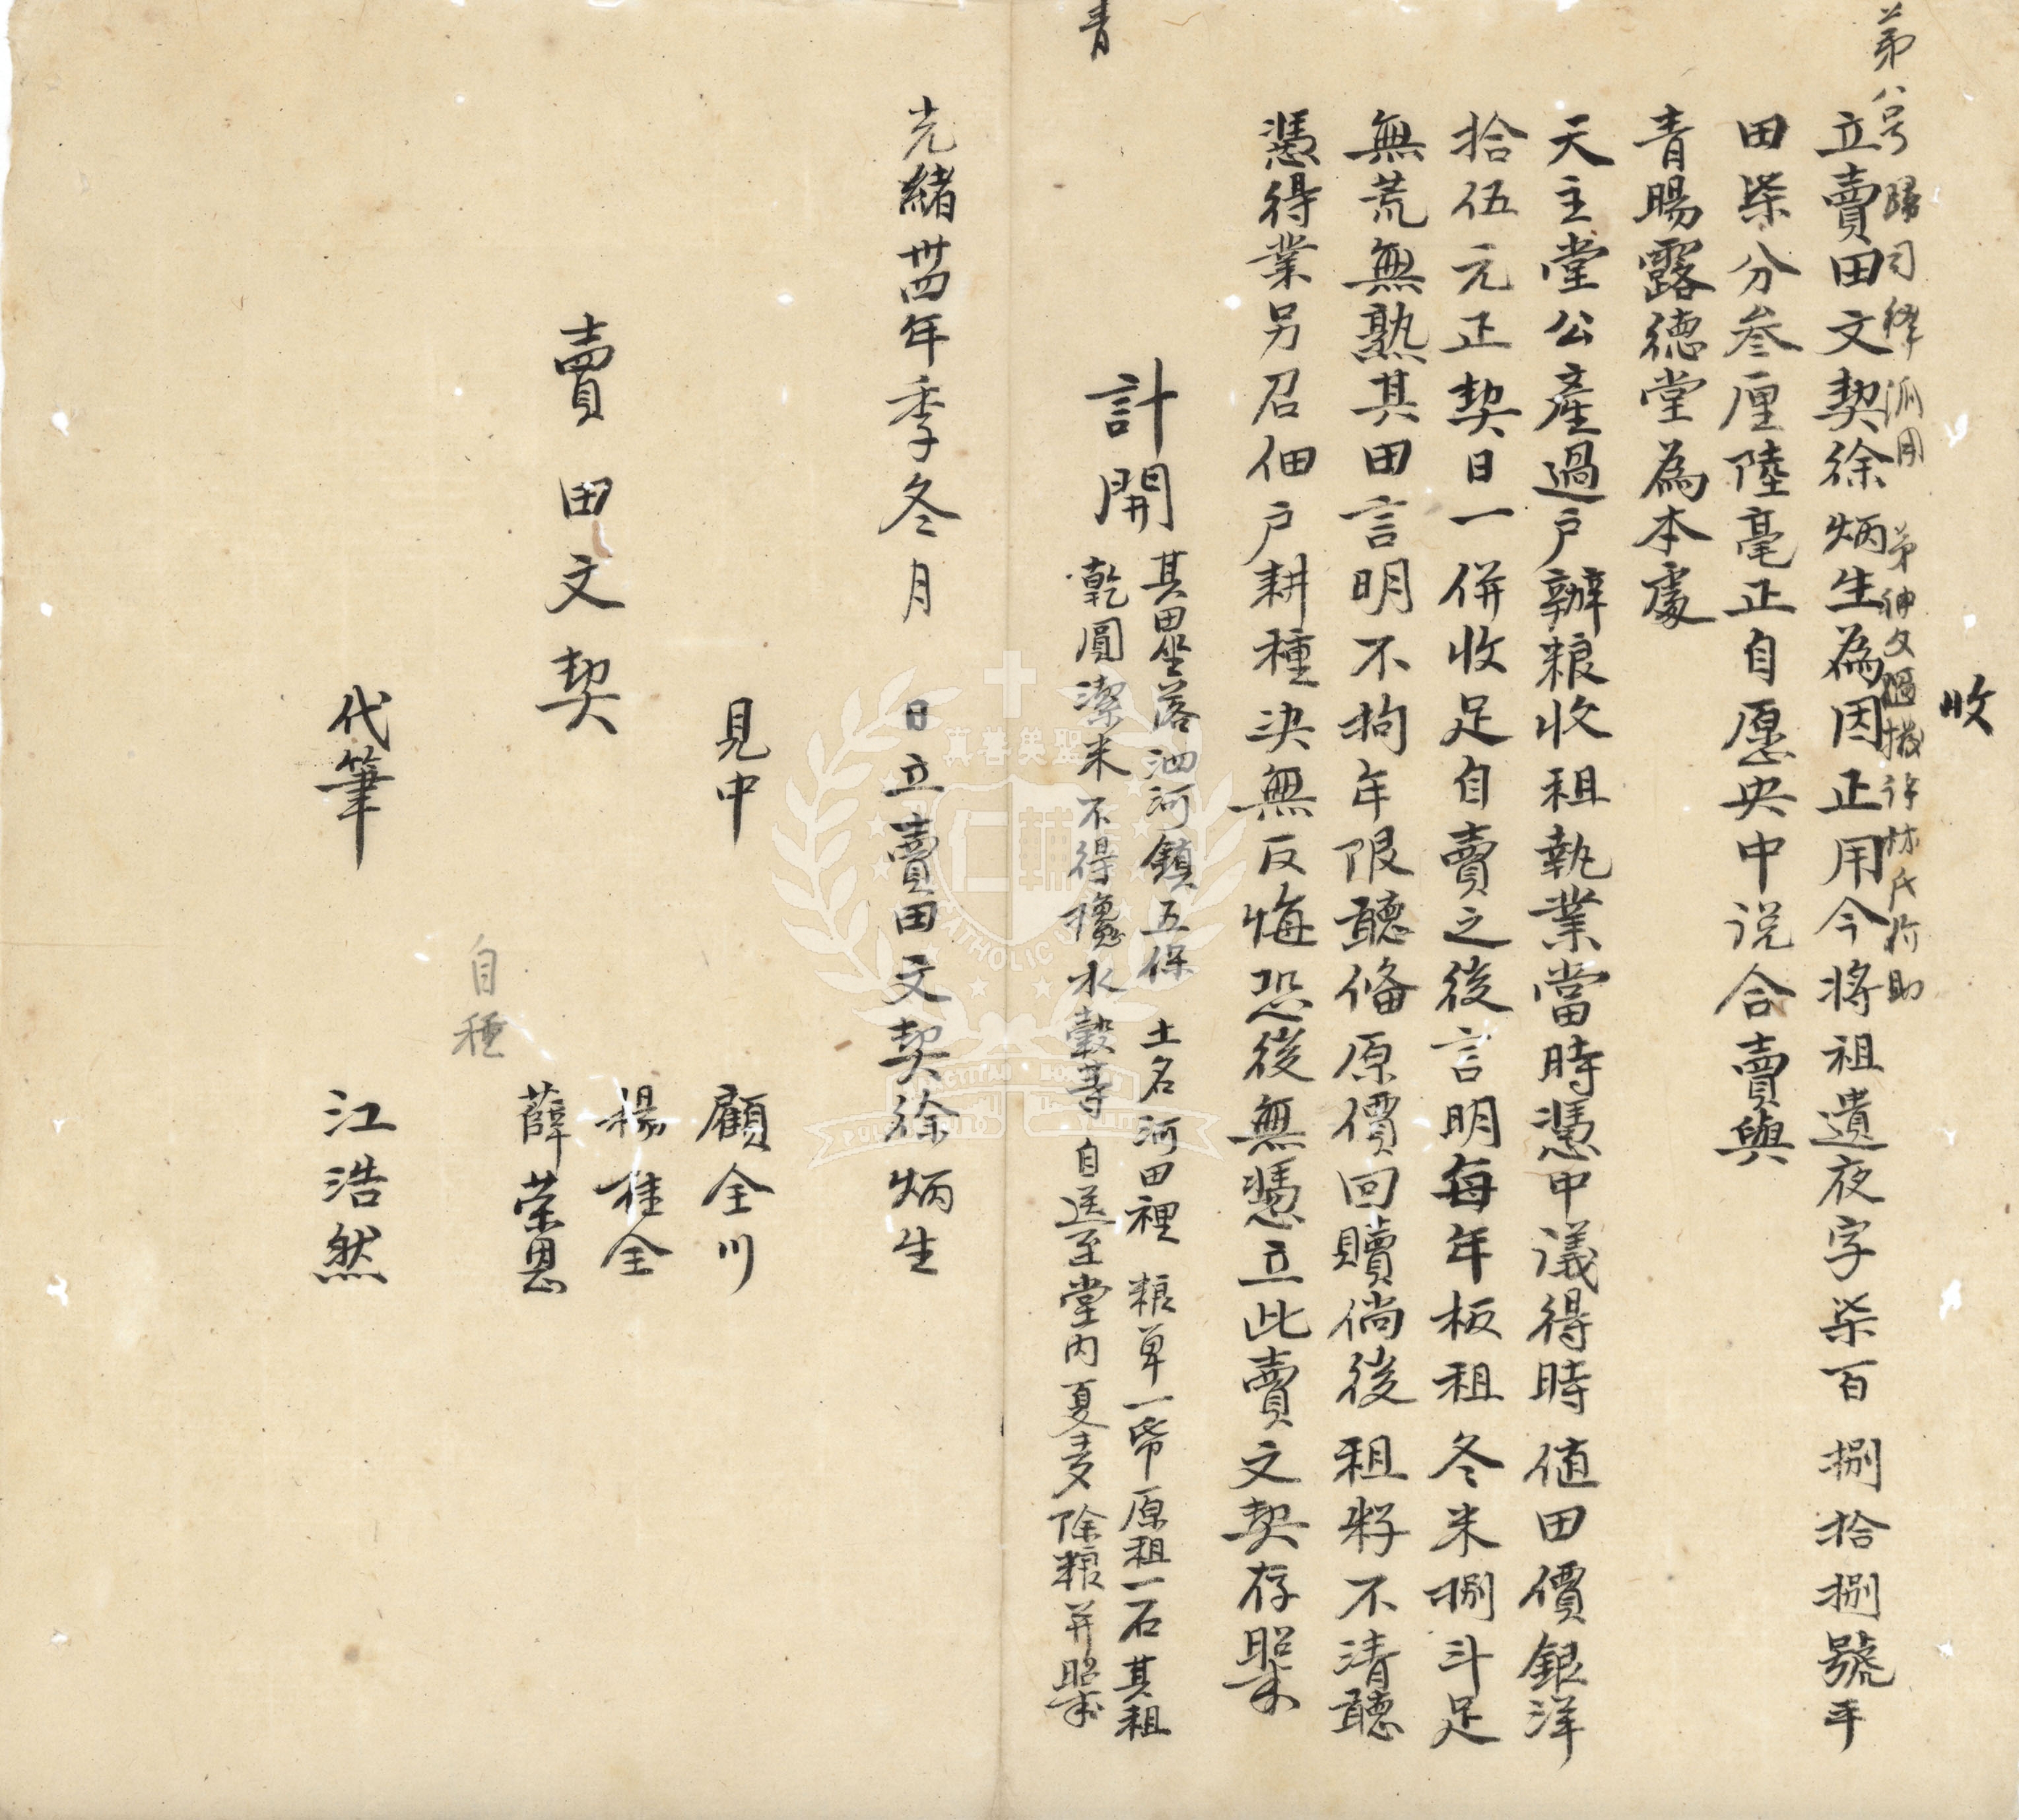 收
第八号
立賣田文契徐炳生為因正用今將祖遺夜字柒百捌拾捌號平
田柒分叁厘陸毫正自愿央中说合賣與
青暘露德堂為本處
天主堂公產過户辦粮收租執業當時憑中議得時值田價銀洋
拾伍元正契日一併收足自賣之後言明每年板租冬米捌斗足
無荒無熟其田言明不拘年限聽俻原價回贖倘後租籽不清聽
憑得業另召佃户耕種决無反悔恐後無憑立此賣文契存照
青
計開
其田坐落泗河鎮五保 土名河田裡 粮单一帋原租一石其租
乾圓潔米不得攙水穀等 自送至堂内夏麦除粮并照
光緒卅四年季冬月 日立賣田文契徐炳生
見中 顧全川
楊桂全
薛荣恩
賣田文契
自種
代筆 江浩然
真善美聖
仁
CATHOLIC U